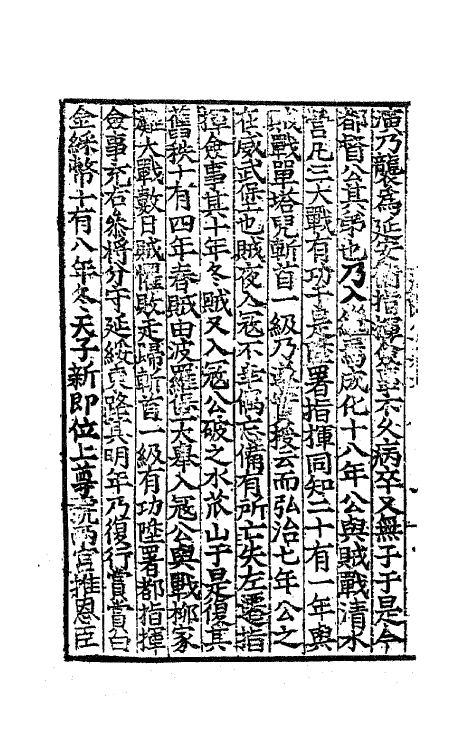 演乃襲為延安衛指揮使演不久病卒又無子于是今
都督公其弟也乃入繼焉成化十八年公與賊戰清水
營凡三大戰有功于是陞署指揮同知二十有一年與
賊戰單塔兒斬首一級乃授云而弘治七年公之
在威武堡也賊夜入寇不幸偶忘備有所亡失左遷指
揮僉事其十年冬賊又入寇公破之水瓜山于是復其
舊秩十有四年春賊由波羅堡大舉入寇公與戰柳家
大戰數日賊懼敗走歸斬首一級有功陞署都指揮
僉事充右叅將分守延綏東路其明年乃復行賞賞白
金綵幣十有八年冬天子新即位上尊號兩宮推恩臣